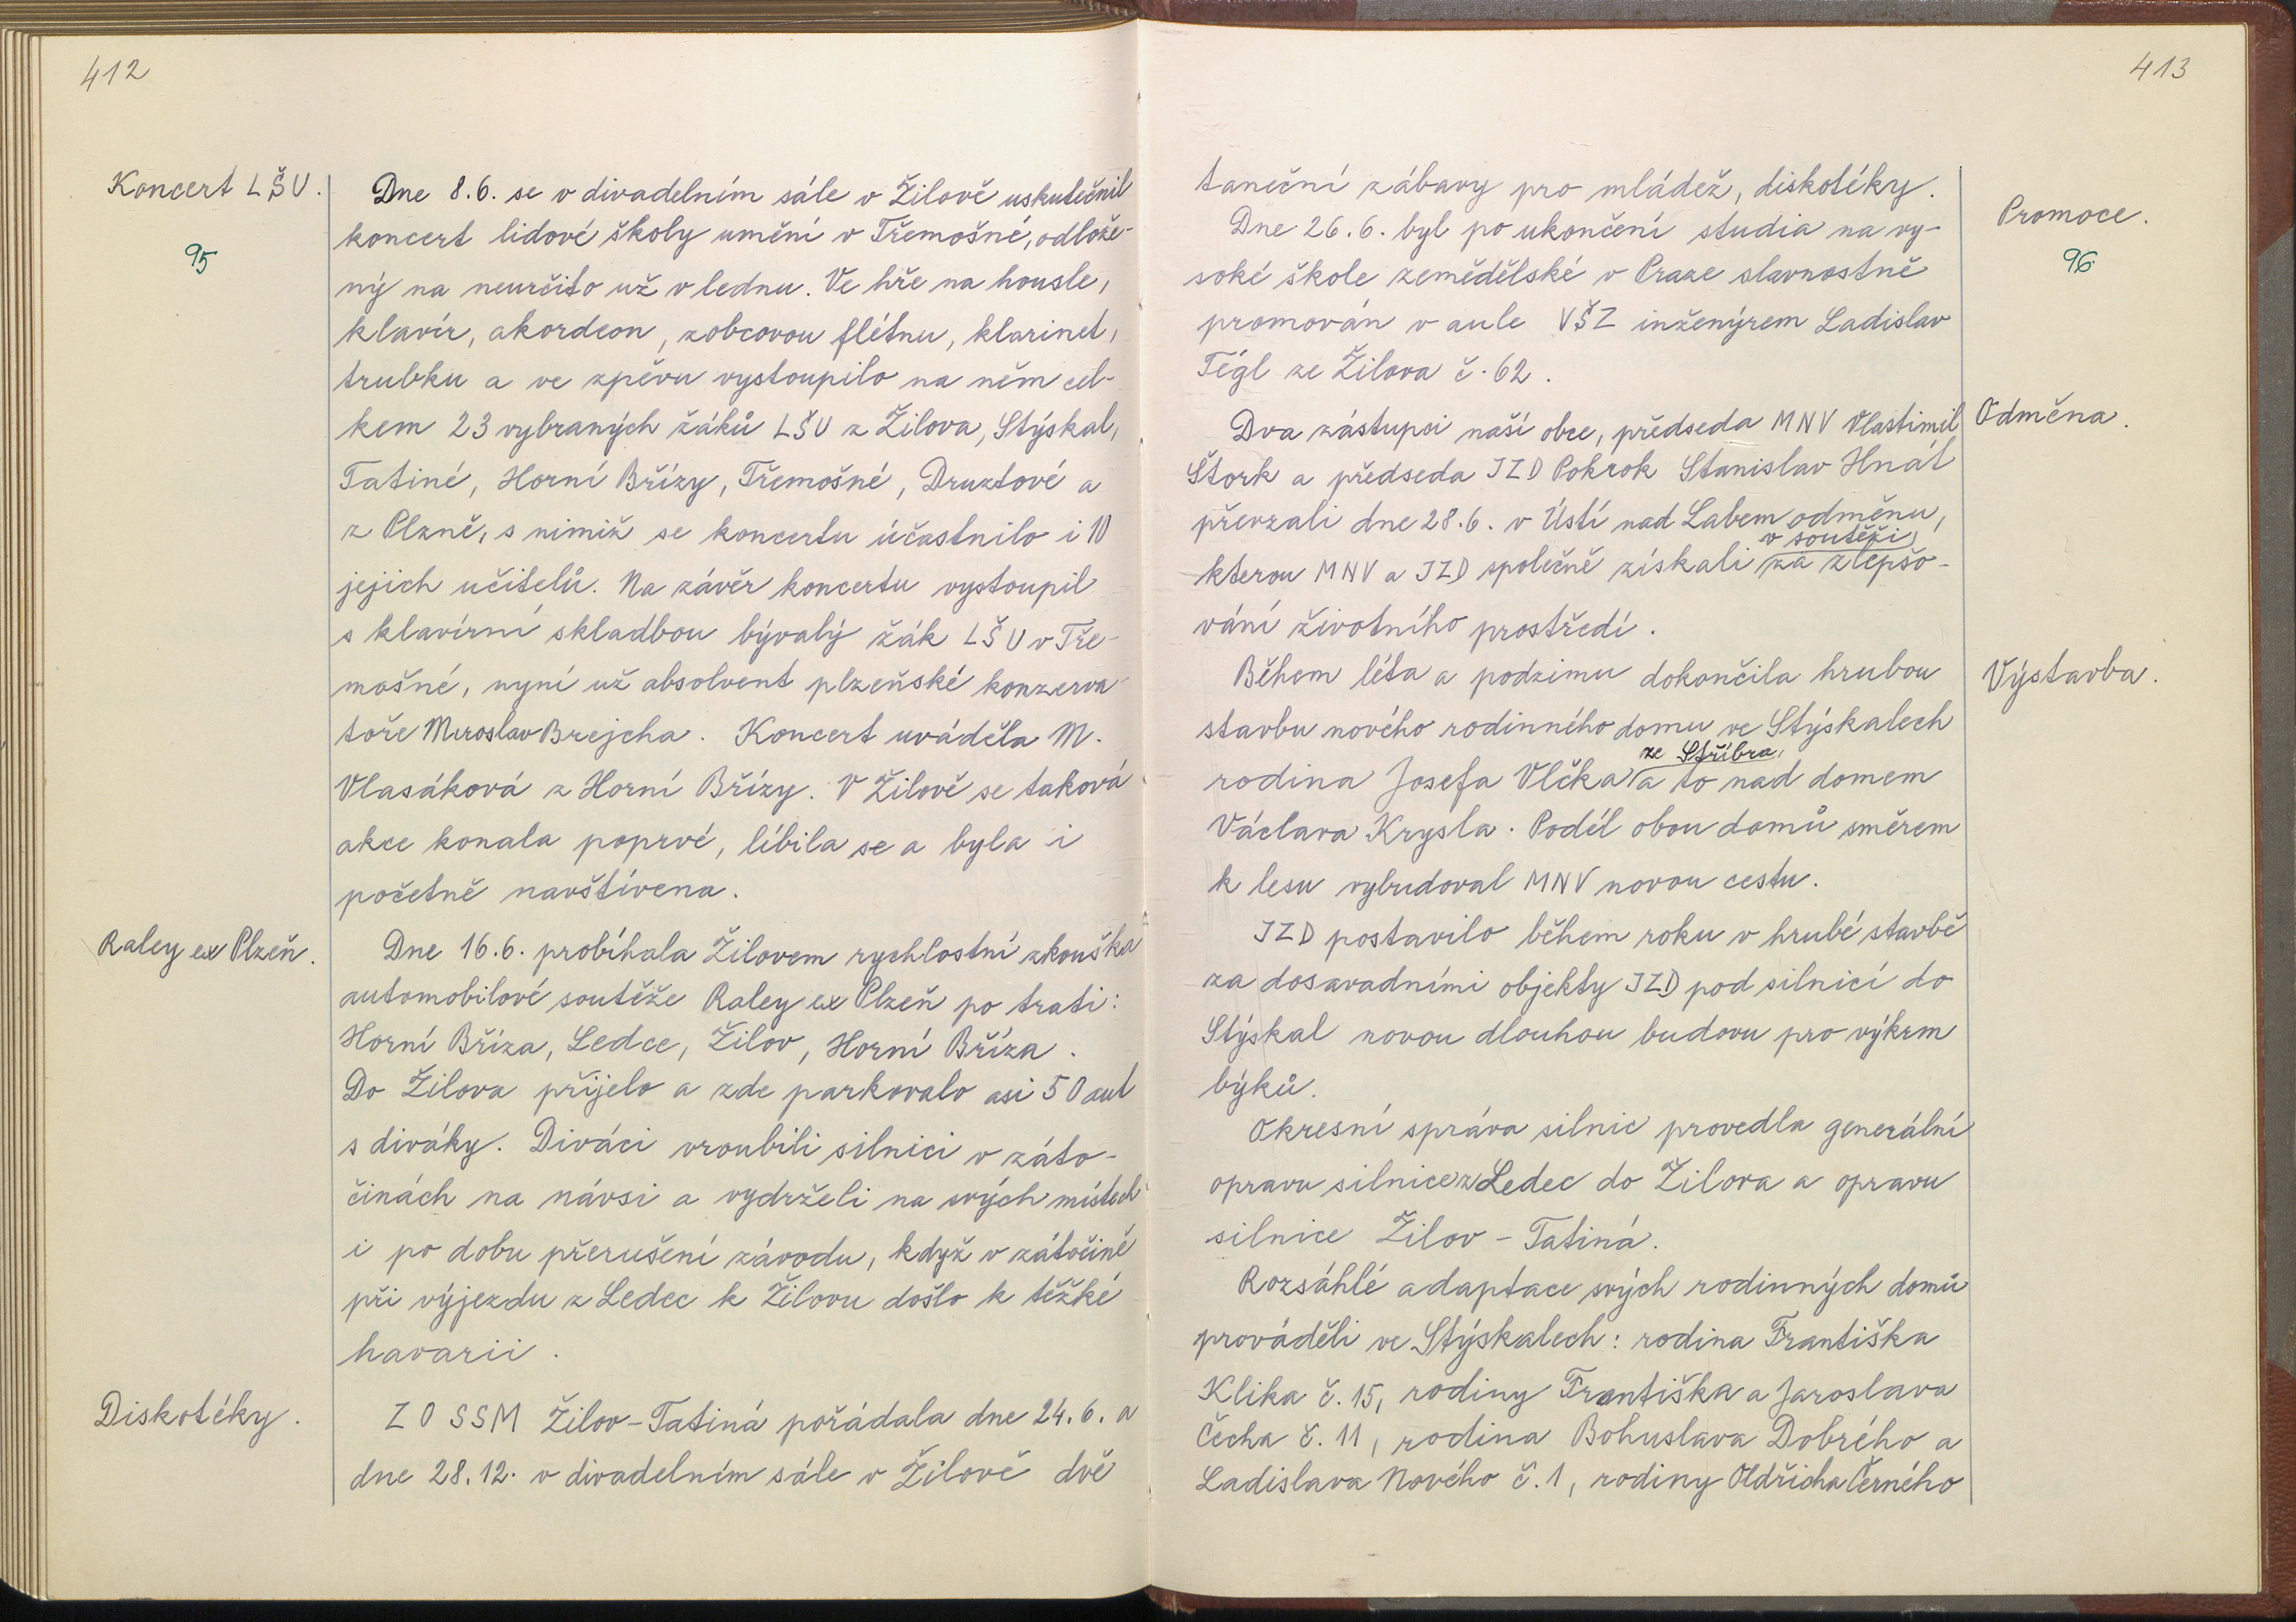 412
Koncert LŠU.
95
Dne 8.6. se v divadelním sále v Žilově uskutečnil
koncert lidové školy umění v Třemošné, odlože-
ný na neurčito už v lednu. Ve hře na housle,
klavír, akordeon, zobcovou flétnu, klarinet,
trubku a ve zpěvu vystoupilo na něm cel-
kem 23 vybraných žáků LŠU z Žilova, Stýskal,
Tatiné, Horní Břízy, Třemošné, Druztové a
z Plzně, s nimiž se koncertu účastnilo i 10
jejich učitelů. Na závěr koncertu vystoupil
s klavírní skladbou bývalý žák LŠU v Tře-
mošné, nyní už absolvent plzeňské konzerva-
toře Miroslav Brejcha. Koncert uváděla M.
Vlasáková z Horní Břízy. V Žilově se taková
akce konala poprvé, líbila se a byla i
početně navštívena.
Raley ex Plzeň.
Dne 16.6. probíhala Žilovem rychlostní zkouška
automobilové soutěže Raley ex Plzeň po trati:
Horní Bříza, Ledce, Žilov, Horní Bříza.
Do Žilova přijelo a zde parkovalo asi 50 aut
s diváky. Diváci vroubili silnici v záto-
činách na návsi a vydrželi na svých místech
i po dobu přerušení závodu, když v zátočině
při výjezdu z Ledec k Žilovu došlo k těžké
havarii.
Diskotéky.
ZO SSM Žilov-Tatiná pořádala dne 24.6. a
dne 28.12. v divadelním sále v Žilově dvě
413
taneční zábavy pro mládež, diskotéky.
Promoce.
96
Dne 26.6. byl po ukončení studia na vy-
soké škole zemědělské v Praze slavnostně
promován v aule VŠZ inženýrem Ladislav
Tégl ze Žilova č. 62.
Odměna.
Dva zástupci naší obce, předseda MNV Vlastimil
Štork a předseda JZD Pokrok Stanislav Hnát
převzali dne 28.6. v Ústí nad Labem odměnu,
v soutěži
kterou MNV a JZD společně získali za zlepšo-
vání životního prostředí.
Výstavba.
Během léta a podzimu dokončila hrubou
stavbu nového rodinného domu ve Stýskalech
ze Stříbra,
rodina Josefa Vlčka a to nad domem
Václava Krysla. Podél obou domů směrem
k lesu vybudoval MNV novou cestu.
JZD postavilo během roku v hrubé stavbě
za dosavadními objekty JZD pod silnicí do
Stýskal novou dlouhou budovu pro výkrm
býků.
Okresní správa silnic provedla generální
opravu silnice z Ledec do Žilova a opravu
silnice Žilov - Tatiná.
Rozsáhlé adaptace svých rodinných domů
prováděli ve Stýskalech: rodina Františka
Klika č. 15, rodiny Františka a Jaroslava
Čecha č. 11, rodina Bohuslava Dobrého a
Ladislava Nového č. 1, rodiny Oldřicha Černého